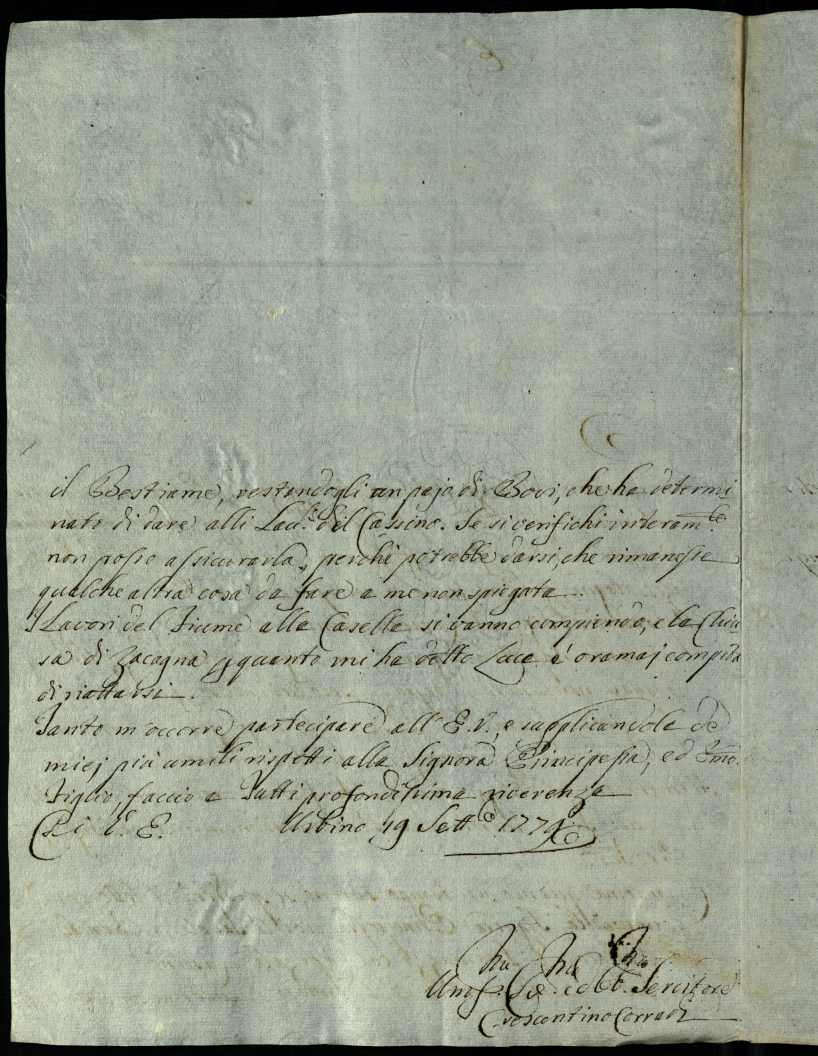 il Bestiame, restandogli un pajo di Bovi, che ha determi
nato di dare alli Lav.ri del Cassino. Se si verifichi interam.te
non posso assicurarla, perchè potrebbe darsi, che rimanesse
qualche altra cosa da fare a me non spiegata.
I Lavori del Fiume alla Casella si vanno compiendo, e la Chiu
sa di Zacagna quanto mi ha detto Luca é oramaj compita
di riattarsi.
Tanto m'occorre partecipare all'E.V., e supplicandola de
miej più umili rispetti alla Signora Principessa, ed Emo.
Figlio, faccio a Tutti profondissima riverenza
Di V. E. Urbino 19 Sett.e 1779
Umo. Dev. ed Ob. Servitore
Crescentino Corradi